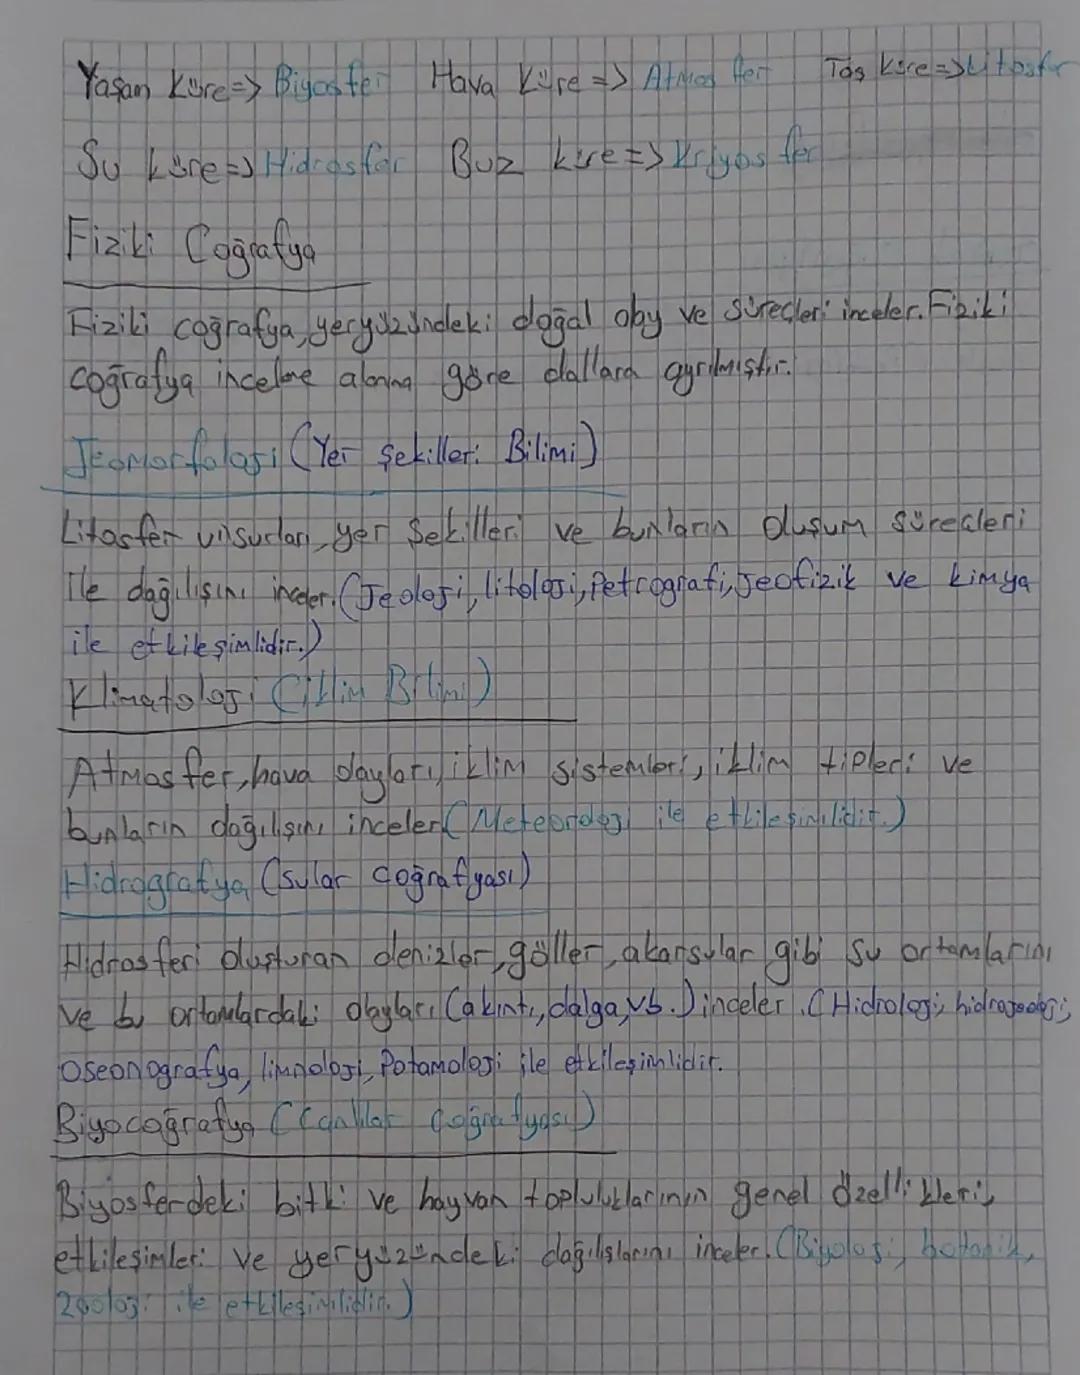 Yaşam Küre=> Biyosfer Hava Küre => Atmosfer Taş küre=>Litosfer
Su küre=> Hidrosfer Buz küre=> Kriyosfer
Fiziki Coğrafya
Fiziki coğrafya, yeryüzündeki doğal olay ve süreçleri inceler. Fiziki
coğrafya inceleme alanına göre dallara ayrılmıştır.
Jeomorfoloji (Yer Şekilleri Bilimi)
Litosfer unsurları, yer Şekilleri ve bunların oluşum süreçleri
ile dağılışını inceler. (Jeoloji, litoloji, Petrografi, Jeofizik ve kimya
ile etkileşimlidir.)
Klimatoloji (İklim Bilimi)
Atmosfer, hava olayları, iklim sistemleri, iklim tipleri ve
bunların dağılışını inceler (Meteoroloji ile etkileşimlidir.)
Hidrografya (sular coğrafyası)
Hidrosferi oluşturan denizler, göller, akarsular gibi su ortamlarını
ve bu ortamlardaki olayları (akıntı, dalga, vb.) inceler. (Hidroloji, hidrojeoloji,
oseonografya, limnoloji, Potamoloji ile etkileşimlidir.
Biyocoğrafya (Canlılar Coğrafyası)
Biyosferdeki bitki ve hayvan topluluklarının genel özellikleri,
etkileşimleri ve yeryüzündeki dağılışlarını inceler. (Biyoloji, botanik,
Zooloji ile etkileşimlidir.)